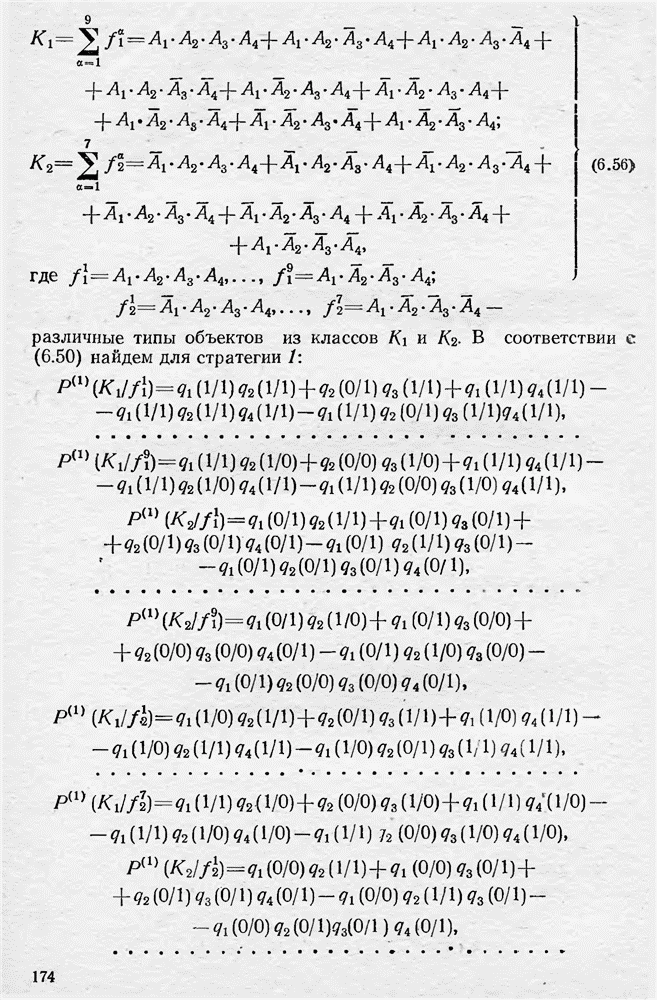 K₁= ∑⁹_{α=1} f₁^α=A₁·A₂·A₃·A₄+A₁·A₂·A̅₃·A₄+A₁·A₂·A₃·A̅₄+
+A₁·A₂·A̅₃·A̅₄+A₁·A̅₂·A₃·A₄+A̅₁·A̅₂·A₃·A₄+
+A₁·A̅₂·A₃·A̅₄+A̅₁·A̅₂·A₃·A̅₄+A₁·A̅₂·A̅₃·A₄;
K₂= ∑⁷_{α=1} f₂^α=A̅₁·A₂·A₃·A₄+A̅₁·A₂·A̅₃·A₄+A̅₁·A₂·A₃·A̅₄+ (6.56)
+A̅₁·A₂·A̅₃·A̅₄+A̅₁·A̅₂·A̅₃·A₄+A̅₁·A̅₂·A̅₃·A̅₄+
+A₁·A̅₂·A̅₃·A̅₄,
где f₁¹=A₁·A₂·A₃·A₄,..., f₁⁹=A₁·A̅₂·A̅₃·A₄;
f₂¹=A̅₁·A₂·A₃·A₄,..., f₂⁷=A₁·A̅₂·A̅₃·A̅₄ —
различные типы объектов из классов K₁ и K₂. В соответствии с
(6.50) найдем для стратегии 1:
P⁽¹⁾(K₁/f₁¹)=q₁(1/1)q₂(1/1)+q₂(0/1)q₃(1/1)+q₁(1/1)q₄(1/1)—
—q₁(1/1)q₂(1/1)q₄(1/1)—q₁(1/1)q₂(0/1)q₃(1/1)q₄(1/1),
. . . . . . . . . . . . . . . . . . . . . . . . . . .
P⁽¹⁾(K₁/f₁⁹)=q₁(1/1)q₂(1/0)+q₂(0/0)q₃(1/0)+q₁(1/1)q₄(1/1)—
—q₁(1/1)q₂(1/0)q₄(1/1)—q₁(1/1)q₂(0/0)q₃(1/0)q₄(1/1),
P⁽¹⁾(K₂/f₁¹)=q₁(0/1)q₂(1/1)+q₁(0/1)q₃(0/1)+
+q₂(0/1)q₃(0/1)q₄(0/1)—q₁(0/1) q₂(1/1)q₃(0/1)—
—q₁(0/1)q₂(0/1)q₃(0/1)q₄(0/1),
. . . . . . . . . . . . . . . . . . . . . . . . . . .
P⁽¹⁾(K₂/f₁⁹)=q₁(0/1)q₂(1/0)+q₁(0/1)q₃(0/0)+
+q₂(0/0)q₃(0/0)q₄(0/1)—q₁(0/1)q₂(1/0)q₃(0/0)—
—q₁(0/1)q₂(0/0)q₃(0/0)q₄(0/1),
P⁽¹⁾(K₁/f₂¹)=q₁(1/0)q₂(1/1)+q₂(0/1)q₃(1/1)+q₁(1/0)q₄(1/1)—
—q₁(1/0)q₂(1/1)q₄(1/1)—q₁(1/0)q₂(0/1)q₃(1/1)q₄(1/1),
. . . . . . . . . . . . . . . . . . . . . . . . . . .
P⁽¹⁾(K₁/f₂⁷)=q₁(1/1)q₂(1/0)+q₂(0/0)q₃(1/0)+q₁(1/1)q₄(1/0)—
—q₁(1/1)q₂(1/0)q₄(1/0)—q₁(1/1) q₂(0/0)q₃(1/0)q₄(1/0),
P⁽¹⁾(K₂/f₂¹)=q₁(0/0)q₂(1/1)+q₁(0/0)q₃(0/1)+
+q₂(0/1)q₃(0/1)q₄(0/1)—q₁(0/0)q₂(1/1)q₃(0/1)—
—q₁(0/0)q₂(0/1)q₃(0/1)q₄(0/1),
. . . . . . . . . . . . . . . . . . . . . . . . . . .
174